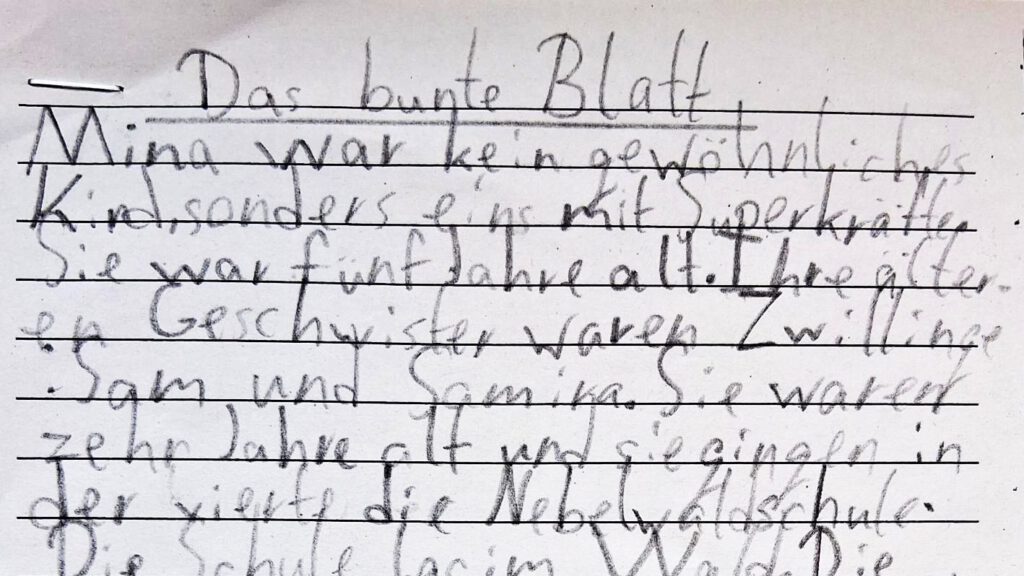 Das bunte Blatt
Mina war kein gewöhnliches
Kind, sonders eins mit Superkräften
Sie war fünf Jahre alt. Ihre älter-
en Geschwister waren Zwillinge
. Sam und Samira. Sie waren
zehn Jahre alt und sie gingen in
der vierte die Nebelwaldschule.
Die Schule lag im Wald. Die